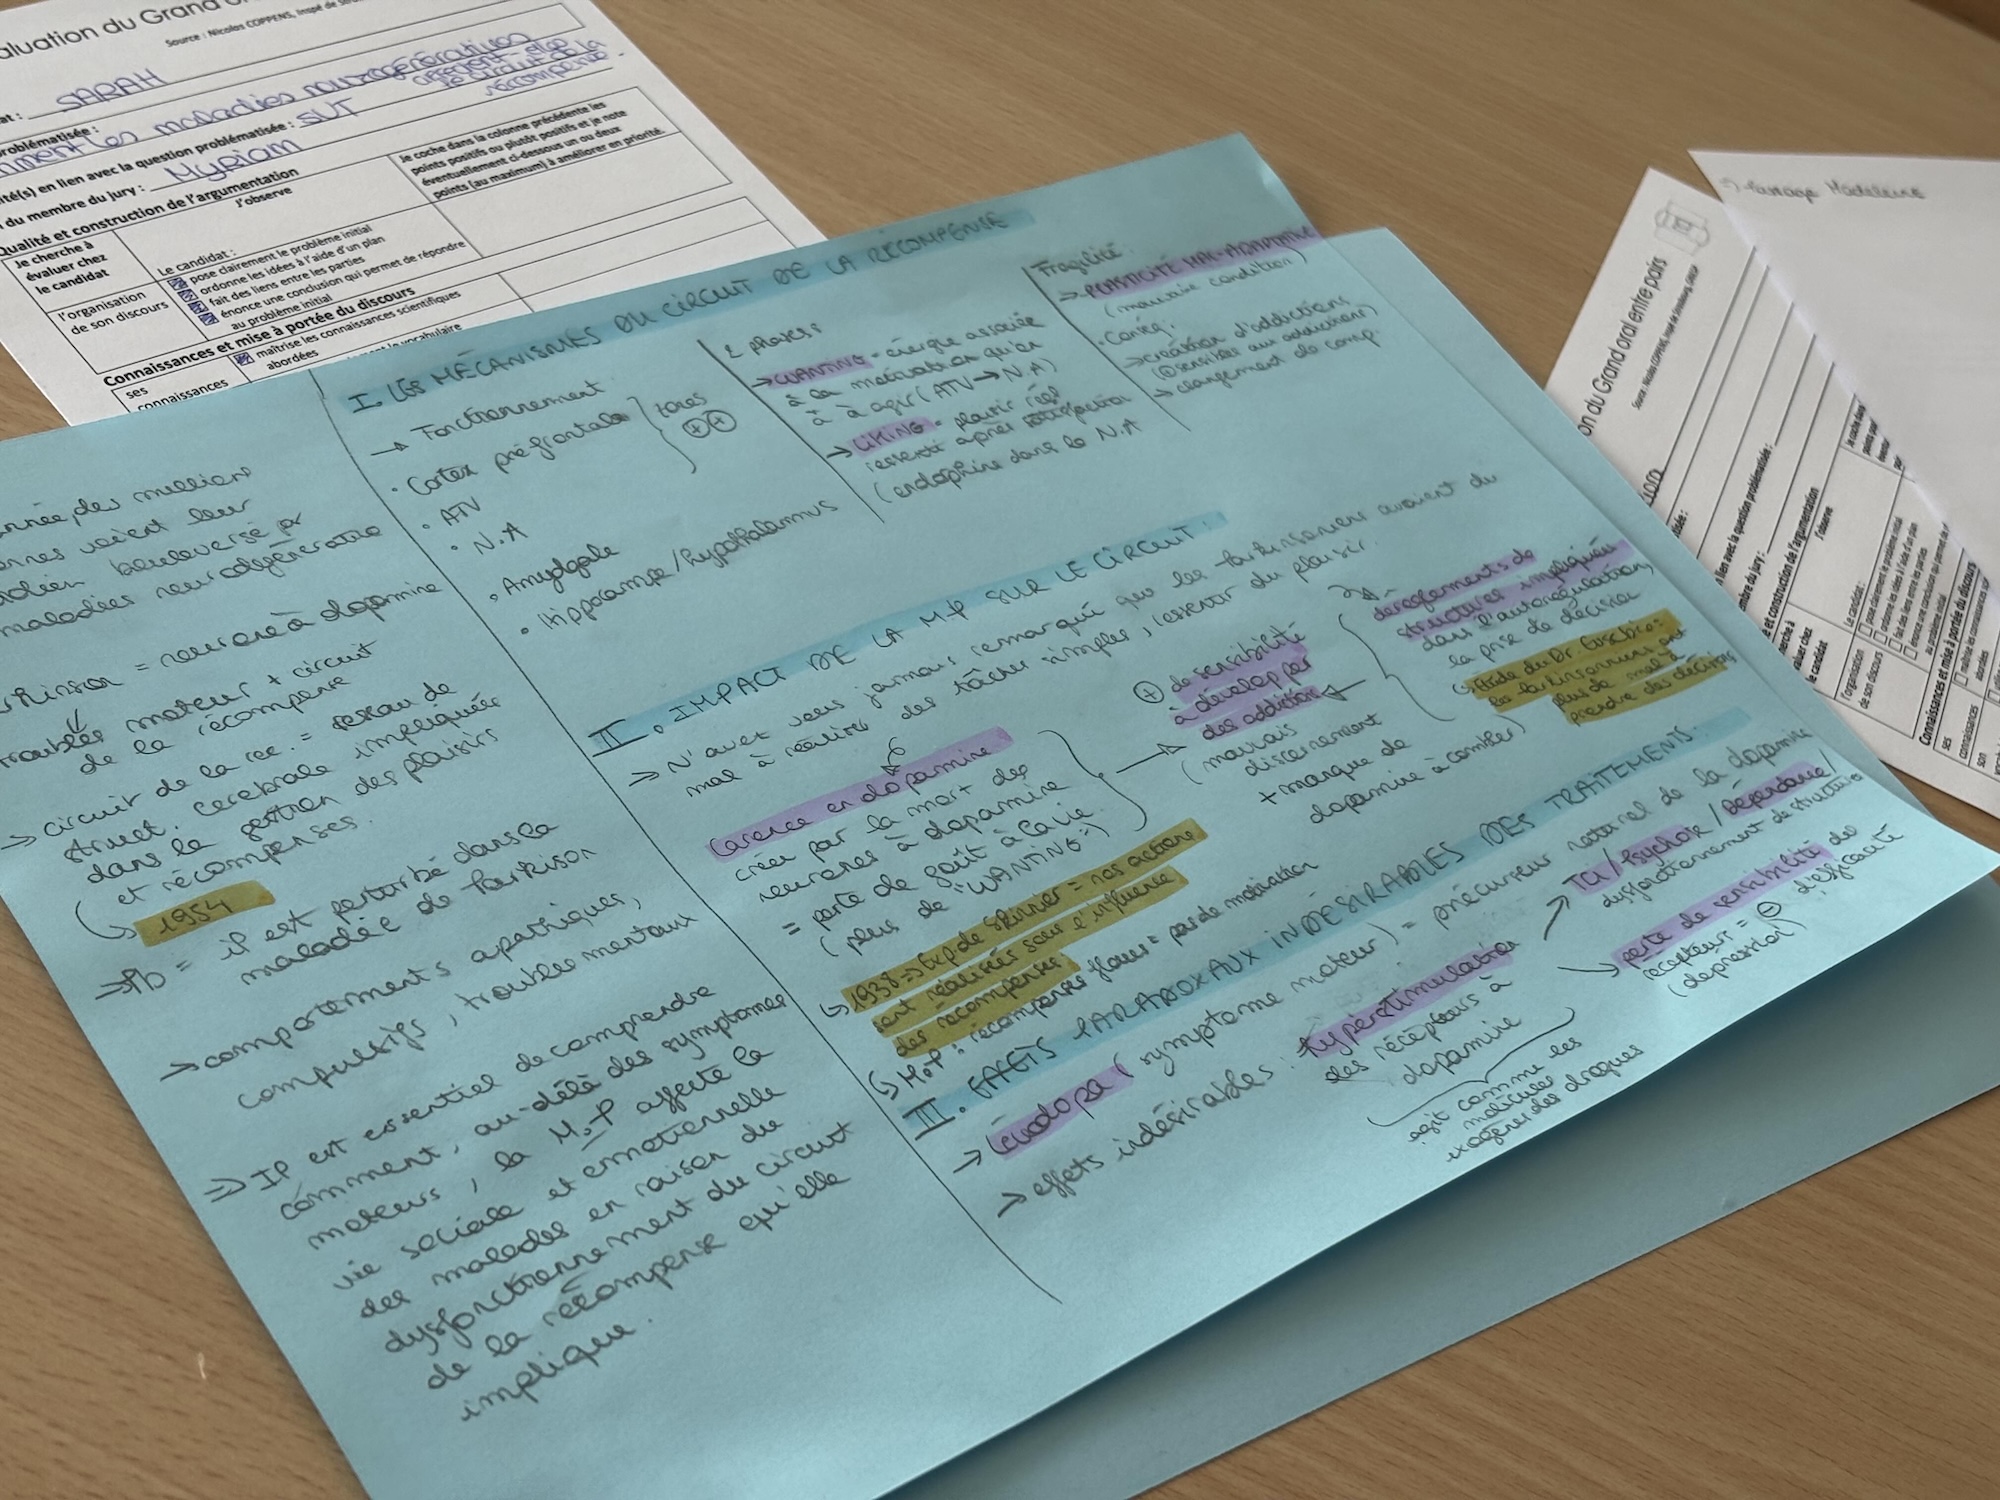 aluation du Grand
Source : Nicolas COPPENS, Inspé de
at : SARAH
problématisée :
mment les maladies neurodégénératives
affectent-elles
le circuit de la
récompense
ité(s) en lien avec la question problématisée : SVT
du membre du jury : Myriam
Qualité et construction de l'argumentation
Je cherche à
évaluer chez
le candidat
J'observe
Je coche dans la colonne précédente les
points positifs ou plutôt positifs et je note
éventuellement ci-dessous un ou deux
points (au maximum) à améliorer en priorité.
l'organisation
de son discours
Le candidat :
pose clairement le problème initial
ordonne les idées à l'aide d'un plan
fait des liens entre les parties
énonce une conclusion qui permet de répondre
au problème initial
Connaissances et mise à portée du discours
ses
connaissances
maîtrise les connaissances scientifiques
abordées
vocabulaire
nnée, des milliers
nnes voient leur
otidien bouleversé par
maladies neurodégénérative
rkinson = neurone à dopamine
troubles moteur + circuit
de la récompense
→ circuit de la rec. = réseau de
struct. cérébrale impliquées
dans la gestion des plaisirs
et récompenses.
↳ 1954
⇒ Pb = il est perturbé dans la
maladie de Parkison
→ comportements apathiques,
compulsifs, troubles mentaux
⇒ Il est essentiel de comprendre
comment, au-délà des symptomes
moteurs, la M.P affecte la
vie sociale et émotionnelle
des malades en raison du
dysfonctionnement du circuit
de la récompense qu'elle
implique.
I. LES MÉCANISMES DU CIRCUIT DE LA RÉCOMPENSE
→ Fonctionnement
• Cortex préfrontale
• ATV
• N.A
• Amygdale
• Hippocampe/hypothalamus
2 phases :
→ WANTING = énergie associée
à la motivation qu'on
a à agir (ATV → N.A)
→ LIKING = plaisir réel
ressenti après satisfaction
(endophine dans le N.A
Fragilité :
→ PLASTICITÉ MAL-ADAPTATIVE
(mauvaise condition)
• Conséq :
→ création d'addictions
(⊕ sensibles au addictions)
→ changement de comp.
II. IMPACT DE LA M.P SUR LE CIRCUIT :
→ N'avez vous jamais remarqué que les parkinsoniens avaient du
mal à réaliser des tâches simples, ressentir du plaisir.
Carence en dopamine
créée par la mort des
neurones à dopamine
= perte de goût à la vie
(plus de "WANTING")
⊕ de sensibilité
à dévelop per
des addiction
(mauvais
discernement
+ manque de
dopamine à combler)
déreglements de
structures impliquées
dans l'autorégulation,
la prise de décision
↳ étude du Dr. Eusebio :
les parkinsoniens ont
plus de mal à
prendre des décisions
↳ 1938 ⇒ Exp. de Skinner = nos actions
sont réalisés sous l'influence
des récompenses.
↳ M.P : récompenses floues = pas de motivation
III. EFFETS PARADOXAUX INDÉSIRABLES DES TRAITEMENTS :
→ Lévodopa (symptome moteur) = précurseur naturel de la dopamine
→ effets indésirables : hyperstimulation
des récepteurs à
dopamine
agit comme les
molécules
exogènes des drogues
TCI / Psychose / Dépendance /
dysfonctionnement de structure
perte de sensibilité des
récepteur = ⊖ d'efficacité
(dépression)
Passage Madeleine
on du Grand oral entre pairs
Source : Nicolas COPPENS, Inspé de Strasbourg
n lien avec la question problématisée :
embre du jury :
et construction de l'argumentation
l'organisation
de son discours
J'observe
Le candidat :
pose clairement le problème initial
ordonne les idées à l'aide d'un plan
fait des liens entre les parties
énonce une conclusion qui permet de
au problème initial
Connaissances et mise à portée du discours
ses